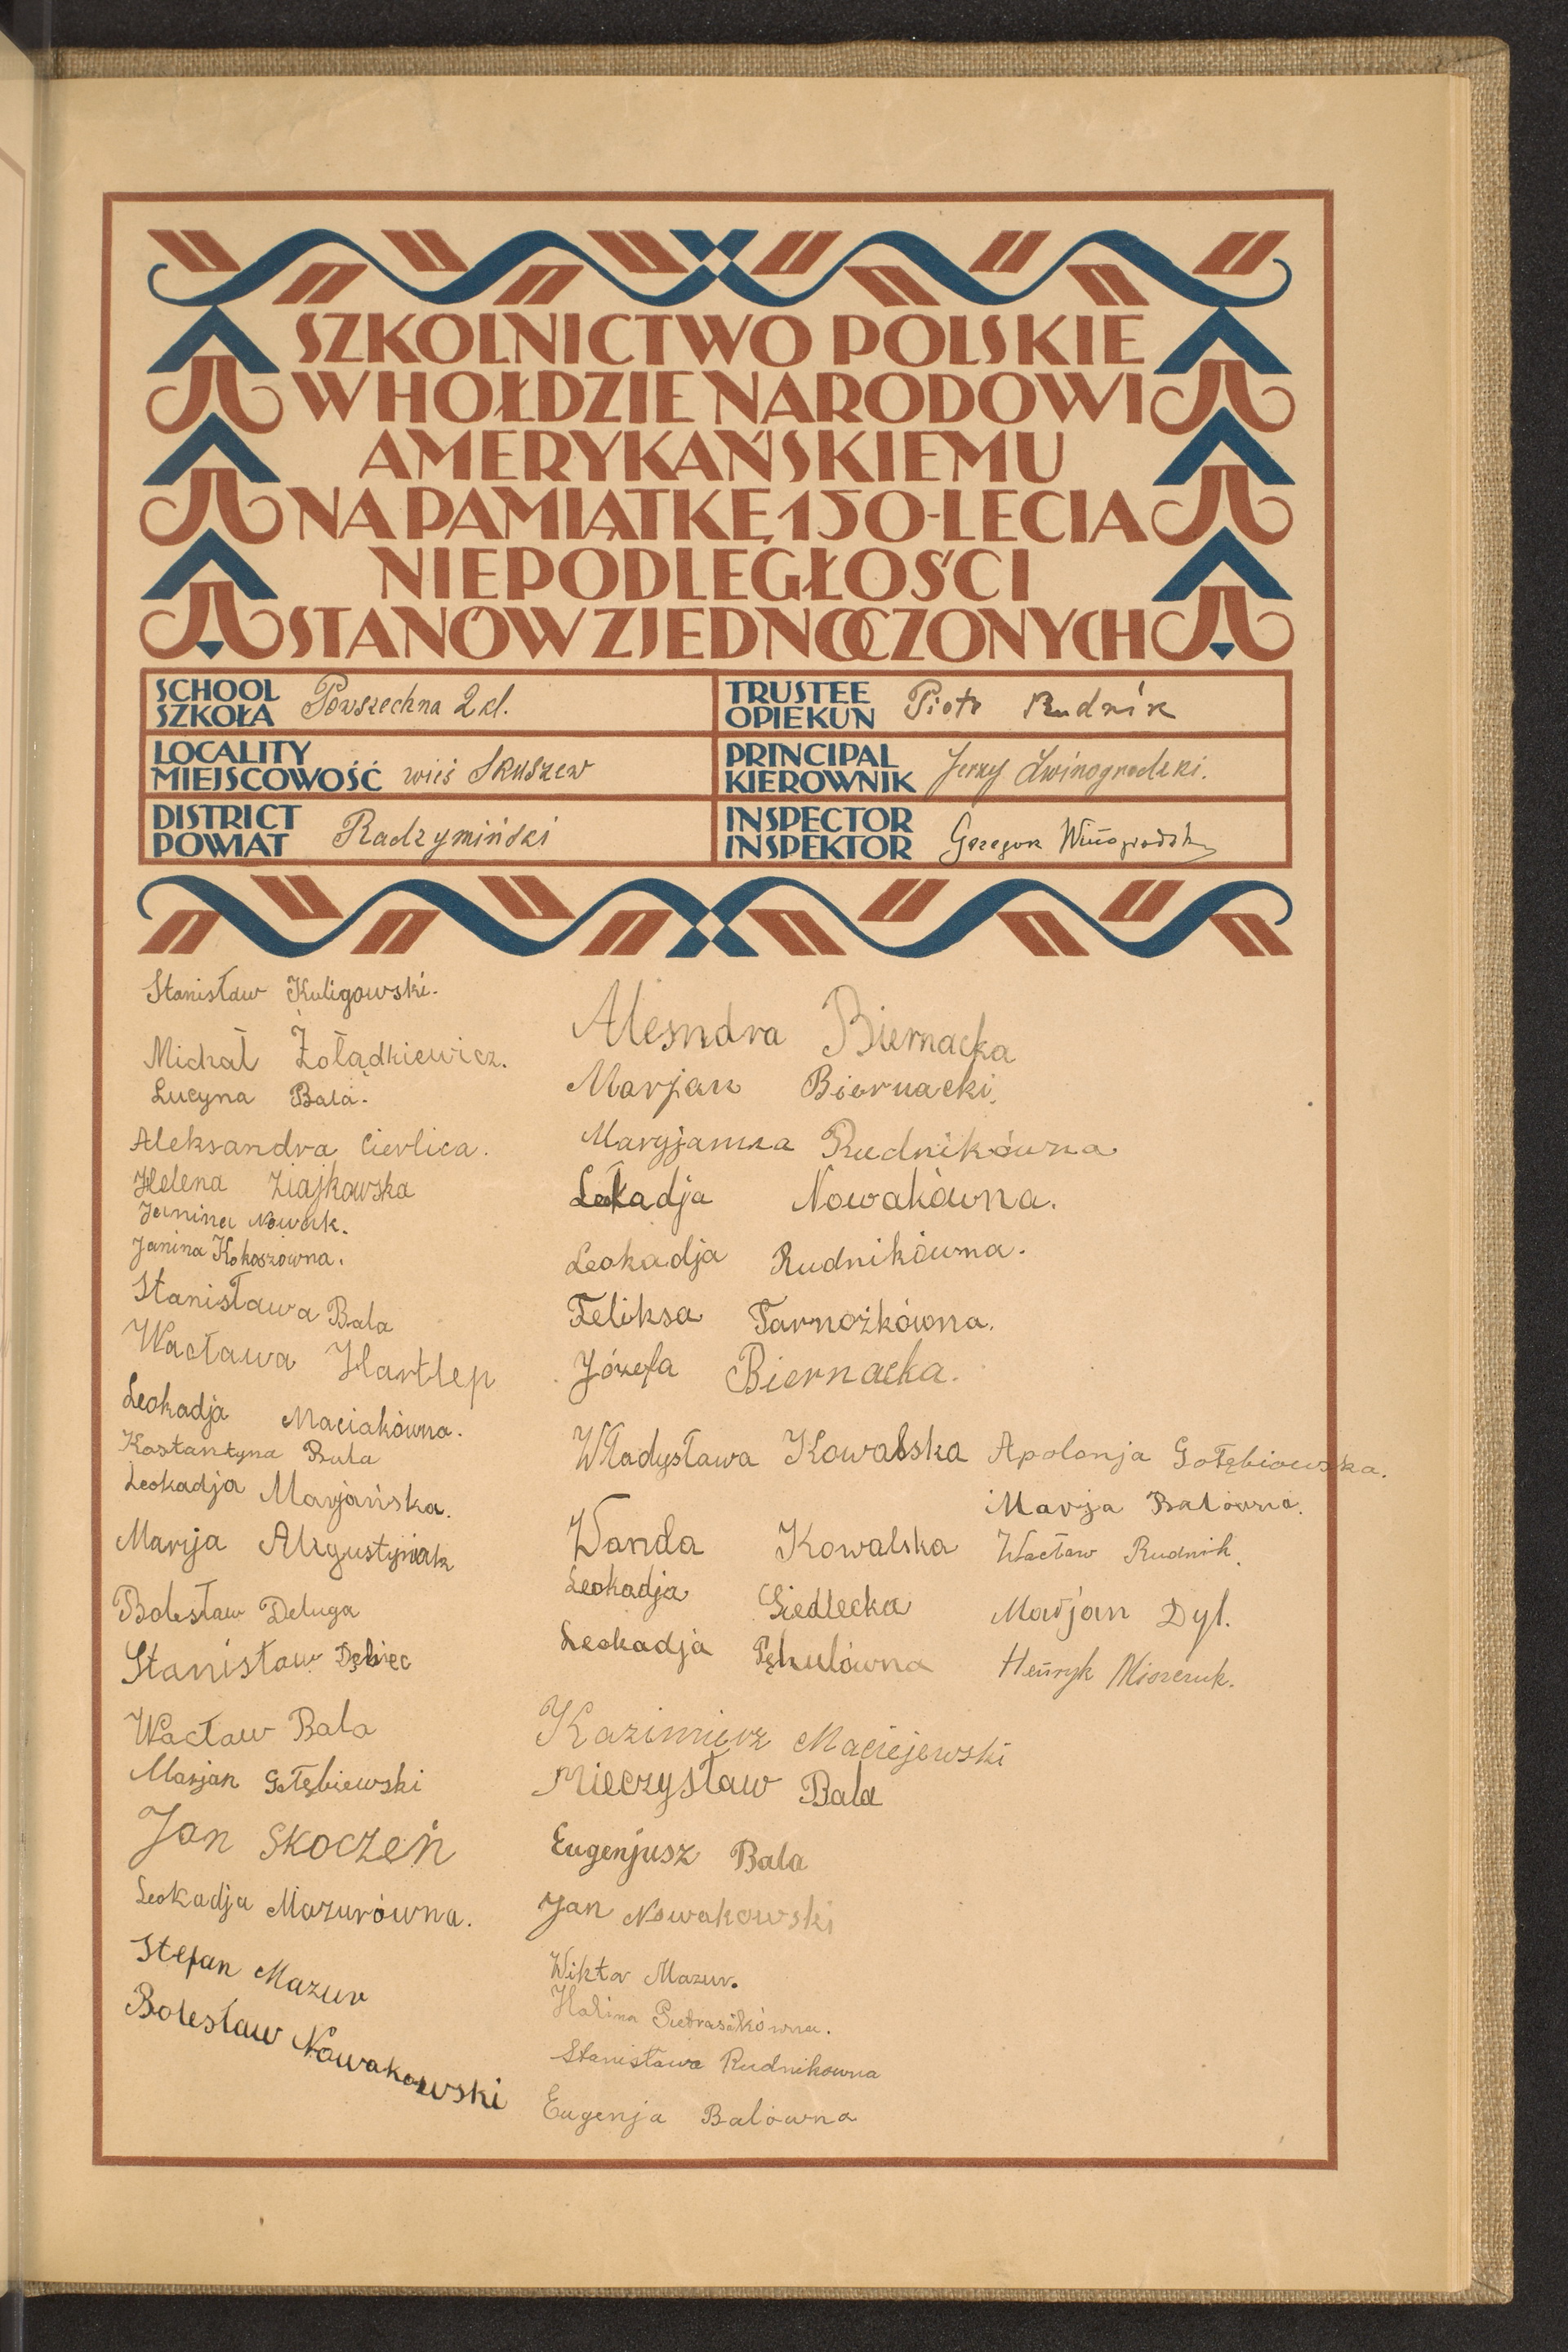 SZKOLNICTWO POLSKIE
W HOŁDZIE NARODOWI
AMERYKAŃSKIEMU
NA PAMIĄTKĘ 150-LECIA
NIEPODLEGŁOŚCI
STANÓW ZJEDNOCZONYCH
SCHOOL
SZKOŁA Powszechna 2 kl.
LOCALITY
MIEJSCOWOŚĆ wieś Skuszew
DISTRICT
POWIAT Radzymiński
TRUSTEE
OPIEKUN Piotr Rudnik
PRINCIPAL
KIEROWNIK Jerzy Żwinogrodzki.
INSPECTOR
INSPEKTOR Grzegorz
Stanisław Kuligowski.
Michał Żołądkiewicz.
Lucyna Bala.
Aleksandra Cierlica.
Helena Ziajkowska
Janina Nowak.
Janina Kokoszówna.
Stanisława Bala
Wacława Hartlep
Leokadja Maciakówna.
Kostantyna Bula
Leokadja Marjańska.
Marija Augustyniak
Bolesław Deluga
Stanisław Dębiec
Wacław Bala
Marjan Gołębiewski
Jan Skoczeń
Leokadja Mazurówna.
Stefan Mazur
Bolesław Nowakowski
Alesndra Biernacka
Marjan Biernacki.
Maryjanna Rudnikówna
Leokadja Nowakówna.
Leokadja Rudnikówna.
Feliksa Tarnożkówna.
Józefa Biernacka.
Władysława Kowalska
Wanda Kowalska
Leokadja Siedlecka
Leokadja Pękulówna
Kazimierz Maciejewski
Mieczysław Bala
Eugenjusz Bala
Jan Nowakowski
Wiktor Mazur.
Halina
Stanisława Rudnikowna
Eugenja Balówna
Apolonja Gołębiowska.
Marja Balówna.
Wacław Rudnik.
Marjan Dyl.
Henryk